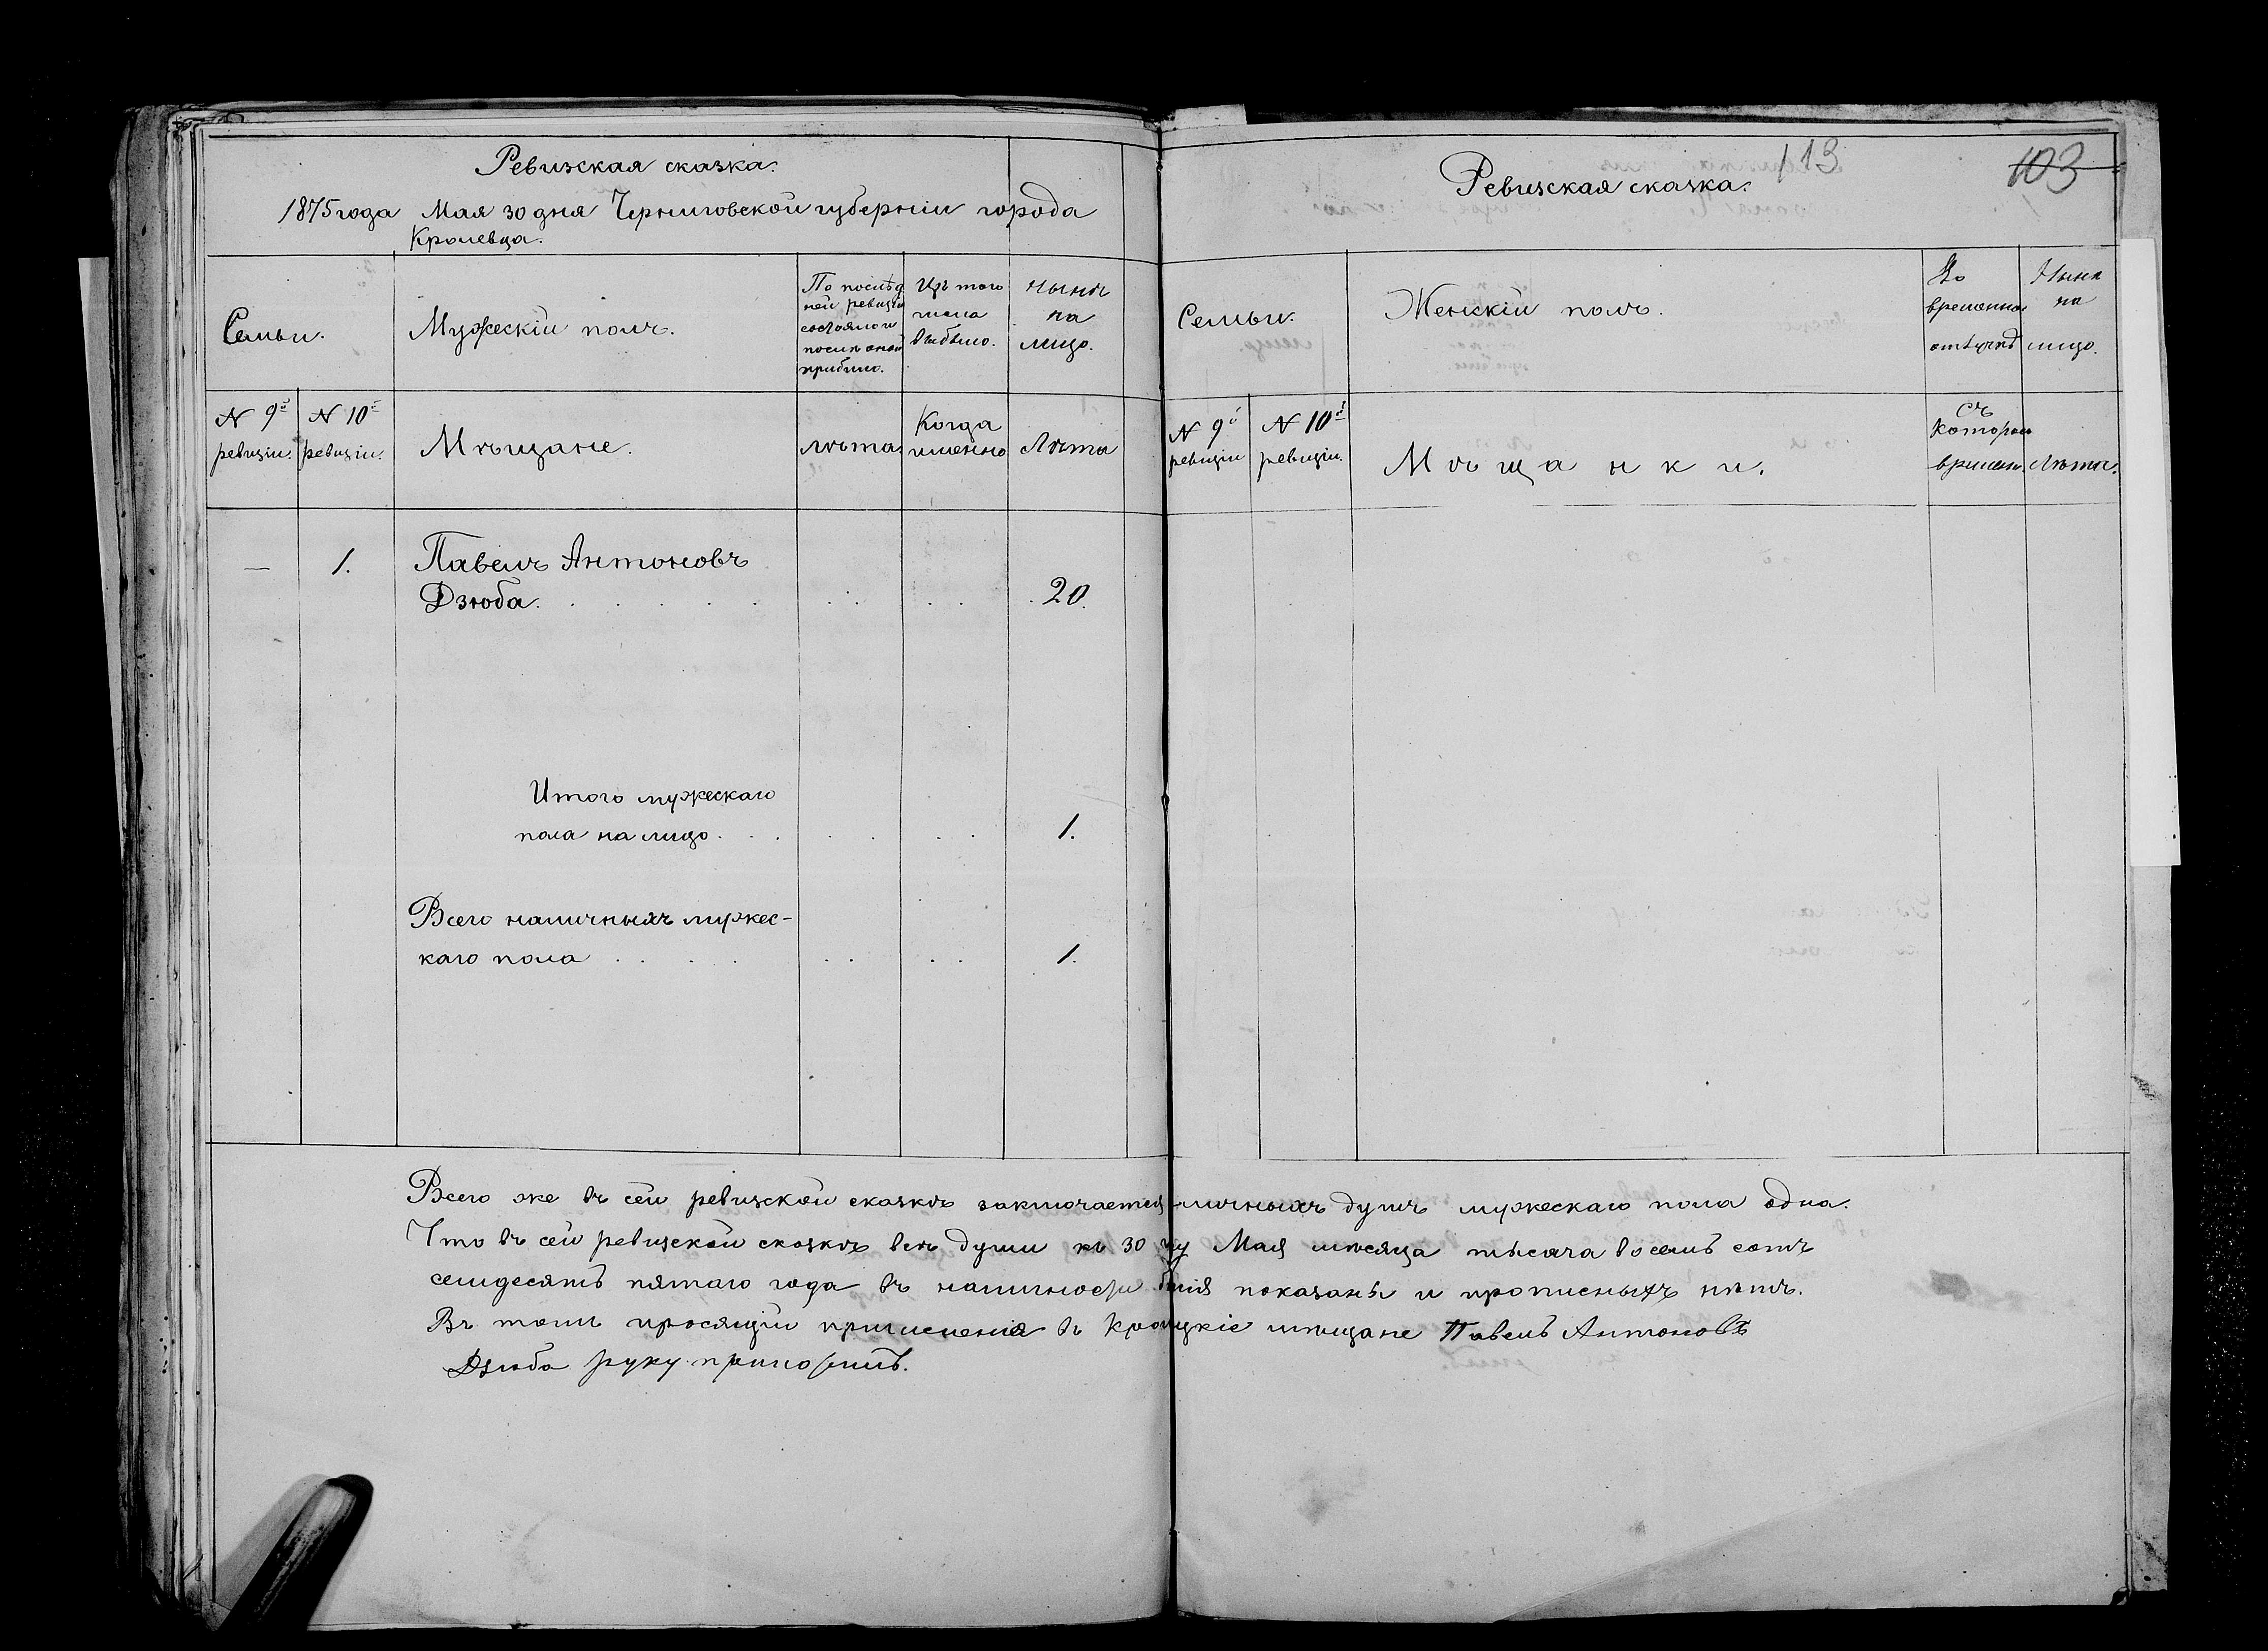 Ревизская сказка.
1875 года Мая 30 дня Черниговской губерніи города
Кролевца.
Семьи.
Мужескій полъ.
По послѣд
ней ревизіи
состояло и
послѣ оной
прибыло.
Изъ того
числа
выбыло.
Нынѣ
на
лицо.
N 9й
ревизіи.
N 10й
ревизіи.
Мѣщане.
лѣта
Когда
именно
Лѣта
— 1. Павелъ Антоновъ
Дзюба. 20.
Итого мужескаго
пола на лицо 1.
Всего наличныхъ мужес-
каго пола 1.
113
103
Ревизская сказка.
Семьи.
Женскій полъ.
Во
временной
отлучкѣ
Нынѣ
на
лицо.
N 9й
ревизіи
N 10й
ревизіи.
Мѣщанки.
Съ
котораго
времен.
Лѣта.
Всего же въ сей ревизской сказкѣ заключается личныхъ душъ мужескаго пола одна.
Что въ сей ревизской сказкѣ всѣ души къ 30 му Мая мѣсяца тысяча восемь сотъ
семдесятъ пятаго года въ наличности показаны и прописныхъ нѣтъ.
Въ томъ просящій причисленія въ мѣщане Павелъ Антоновъ
Дзюба руку приложилъ.